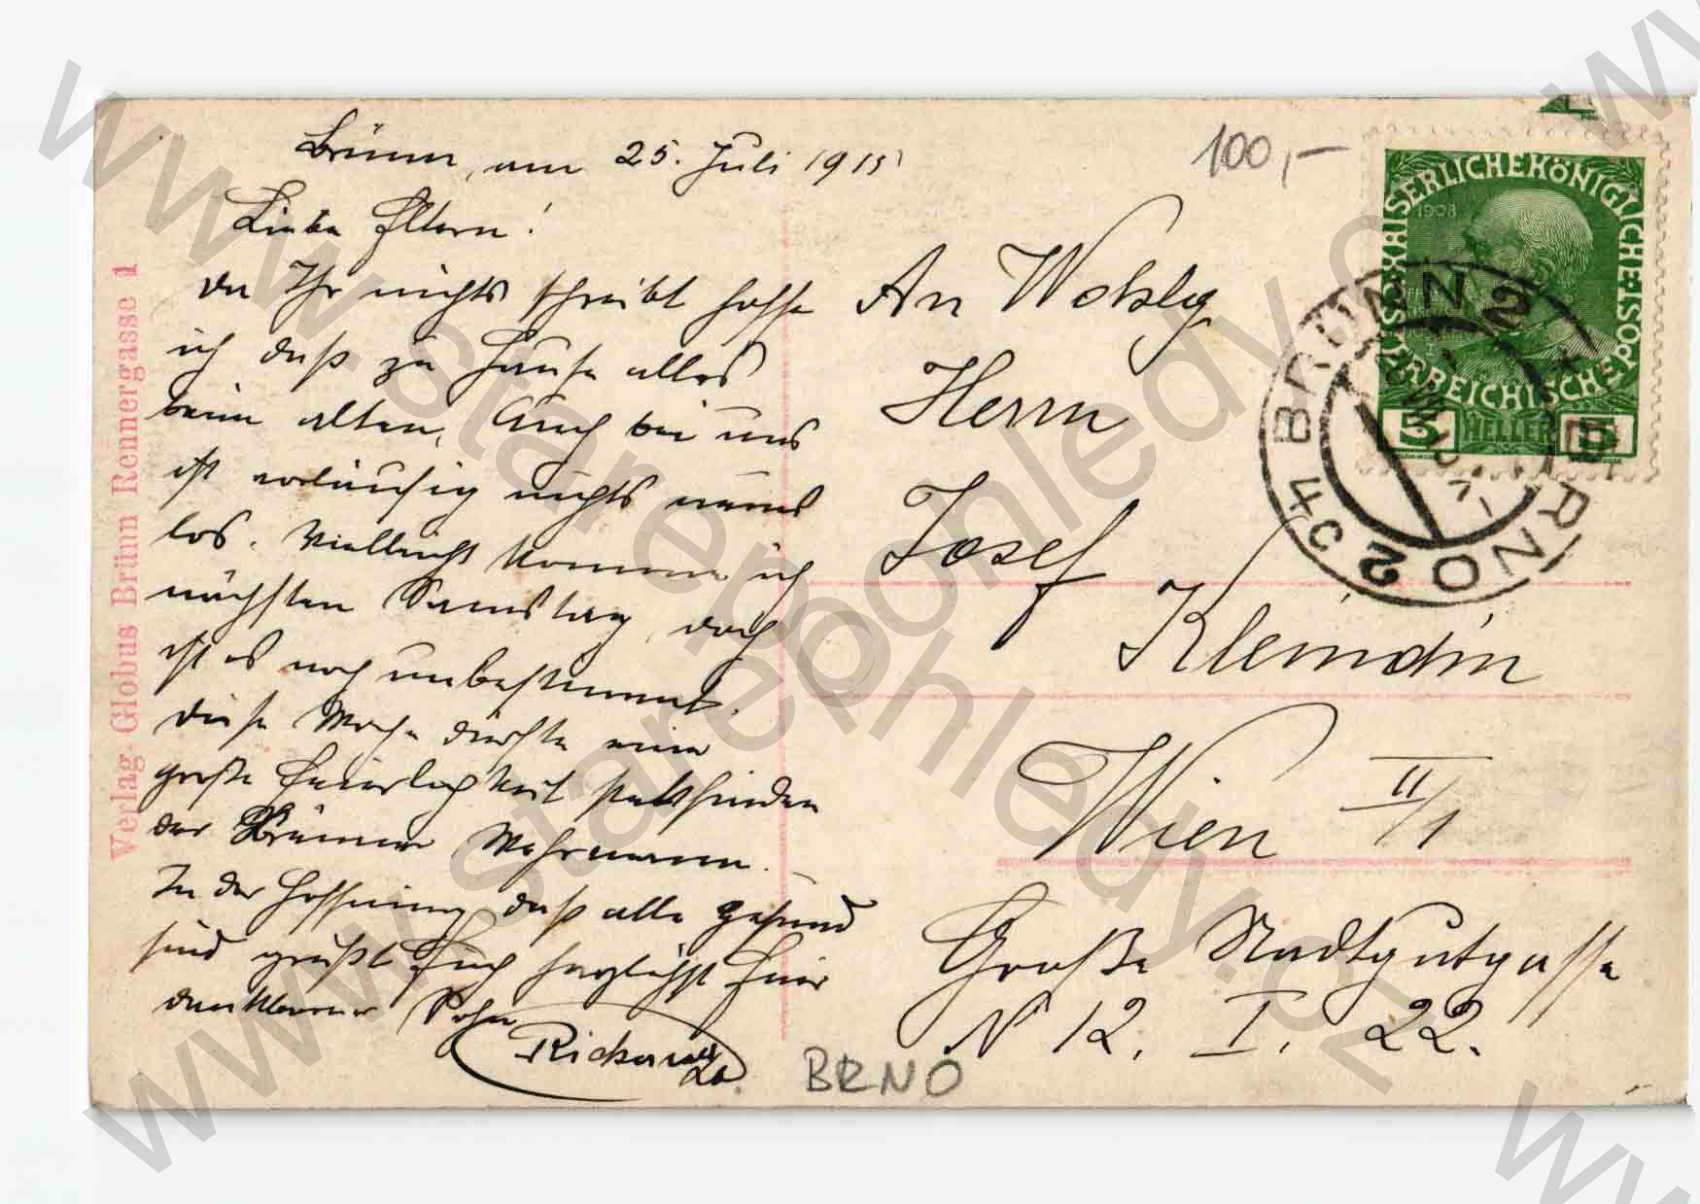 Brünn, am 25. Juli 1915
Liebe Eltern!
da Ihr nichts schreibt hoffe
ich daß zu Hause alles
beim alten. Auch bei uns
ist vorläufig nichts neues
los. Vielleicht komme ich
nächsten Samstag, doch
ist es noch unbestimmt.
Diese Woche dürfte eine
große Feierlichkeit stattfinden
der Brünner Wehrmann.
In der Hoffnung daß alle gesund
sind grüßt Euch herzlichst Euer
dankbarer Sohn
Richard
An Wohlg.
Herrn
Josef
Wien II/1
Große Stadtgutgasse
N 12. I. 22.
100,-
BRNO
Verlag Globus Brünn Rennergasse 1
KAISERLICHEKÖNIGLICHE
ÖSTERREICHISCHE POST
1908
5 HELLER 5
BRÜNN 2
BRNO 2
4c
www.starepohledy.cz
www.starepohledy.cz